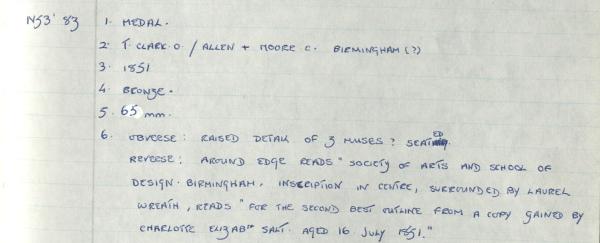 N53' 83 1. MEDAL.
2. T. CLARK. O. / ALLEN + MOORE C. BIRMINGHAM (?)
3. 1851
4. BRONZE.
5. 65 mm.
6. OBVERSE: RAISED DETAIL OF 3 MUSES? SEATED.
REVERSE: AROUND EDGE READS "SOCIETY OF ARTS AND SCHOOL OF
DESIGN. BIRMINGHAM. INSCRIPTION IN CENTRE, SURROUNDED BY LAUREL
WREATH, READS "FOR THE SECOND BEST OUTLINE FROM A COPY GAINED BY
CHARLOTTE ELIZABTH SALT. AGED 16. JULY 1851."